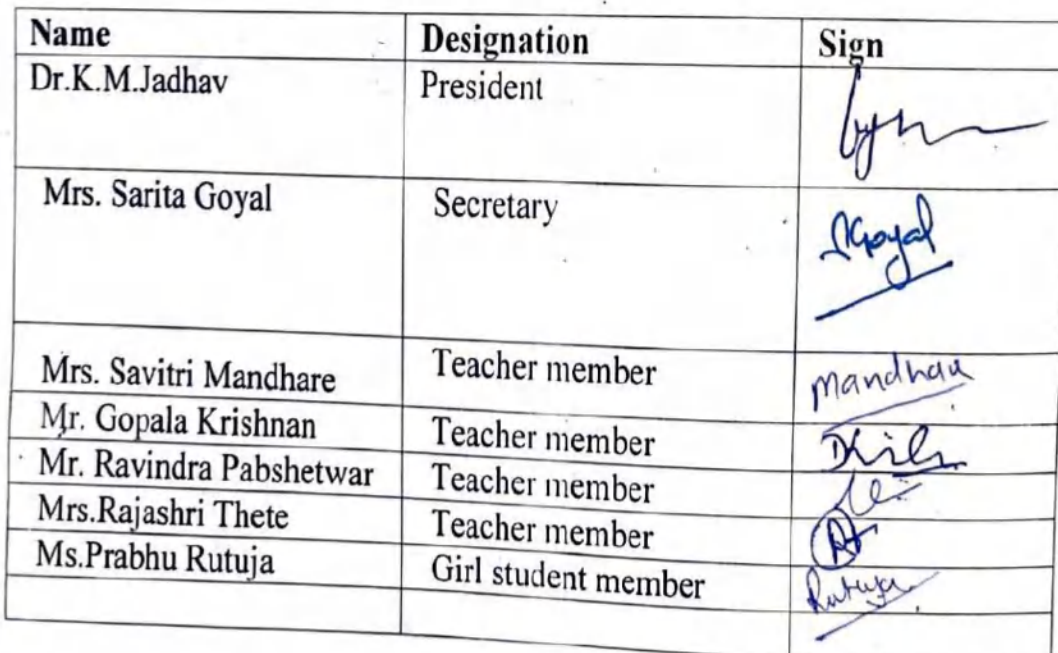 Name Designation Sign
Dr.K.M.Jadhav President
Mrs. Sarita Goyal Secretary SGoyal
Mrs. Savitri Mandhare Teacher member Mandhare
Mr. Gopala Krishnan Teacher member
Mr. Ravindra Pabshetwar Teacher member
Mrs.Rajashri Thete Teacher member
Ms.Prabhu Rutuja Girl student member Rutuja